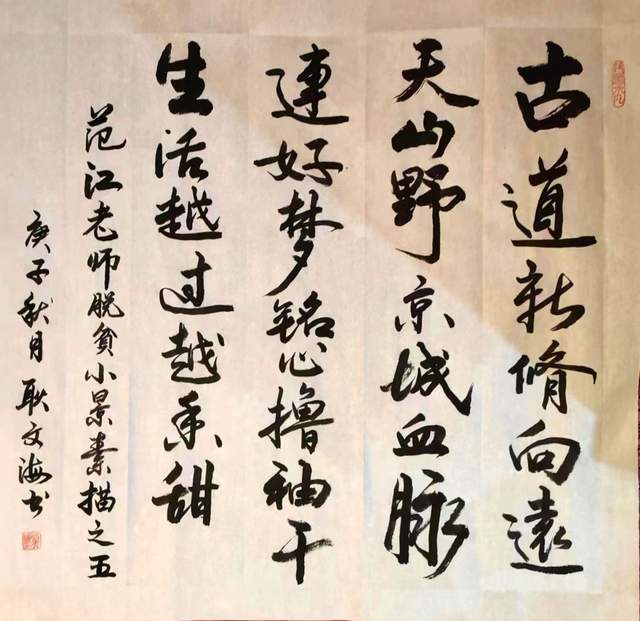 古道新脩向遠
天山野京城血脉
連好梦銘心撸袖干
生活越过越香甜
范江老师脱贫小景素描之五
庚子秋月耿文海书